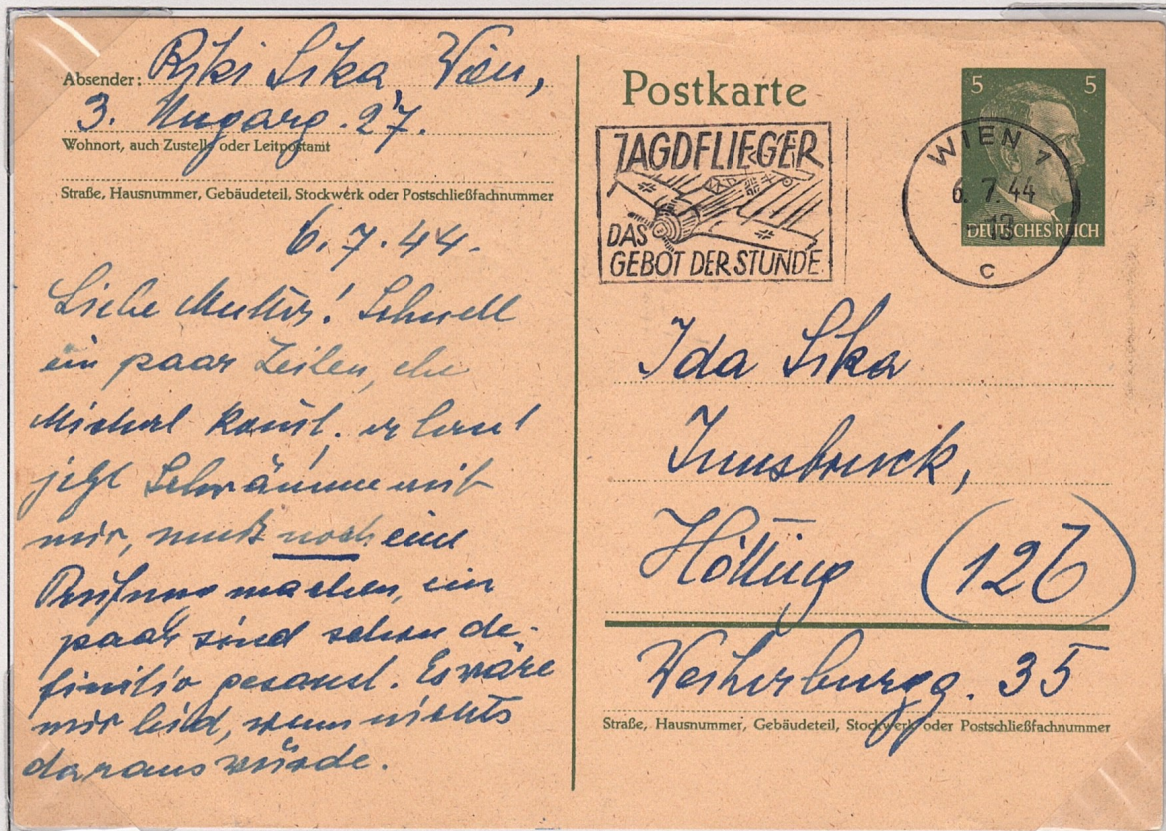 Absender: Riki Sika, Wien,
3. Ungarg. 27.
Wohnort, auch Zustell- oder Leitpostamt
Straße, Hausnummer, Gebäudeteil, Stockwerk oder Postschließfachnummer
6.7.44.
Liebe Mutter! Schnell
ein paar Zeilen, ehe
Michael kommt, er lernt
jetzt mit
mir, muß noch eine
Prüfung machen, ein
paar sind schon de-
finitiv gesaust. Es wäre
mir leid, wenn nichts
daraus würde.
Postkarte
JAGDFLIEGER
DAS
GEBOT DER STUNDE
5 5
WIEN 7
6.7.44
c
DEUTSCHES REICH
Ida Sika
Innsbruck,
Hötting (12b)
Weiherburgg. 35
Straße, Hausnummer, Gebäudeteil, Stockwerk oder Postschließfachnummer